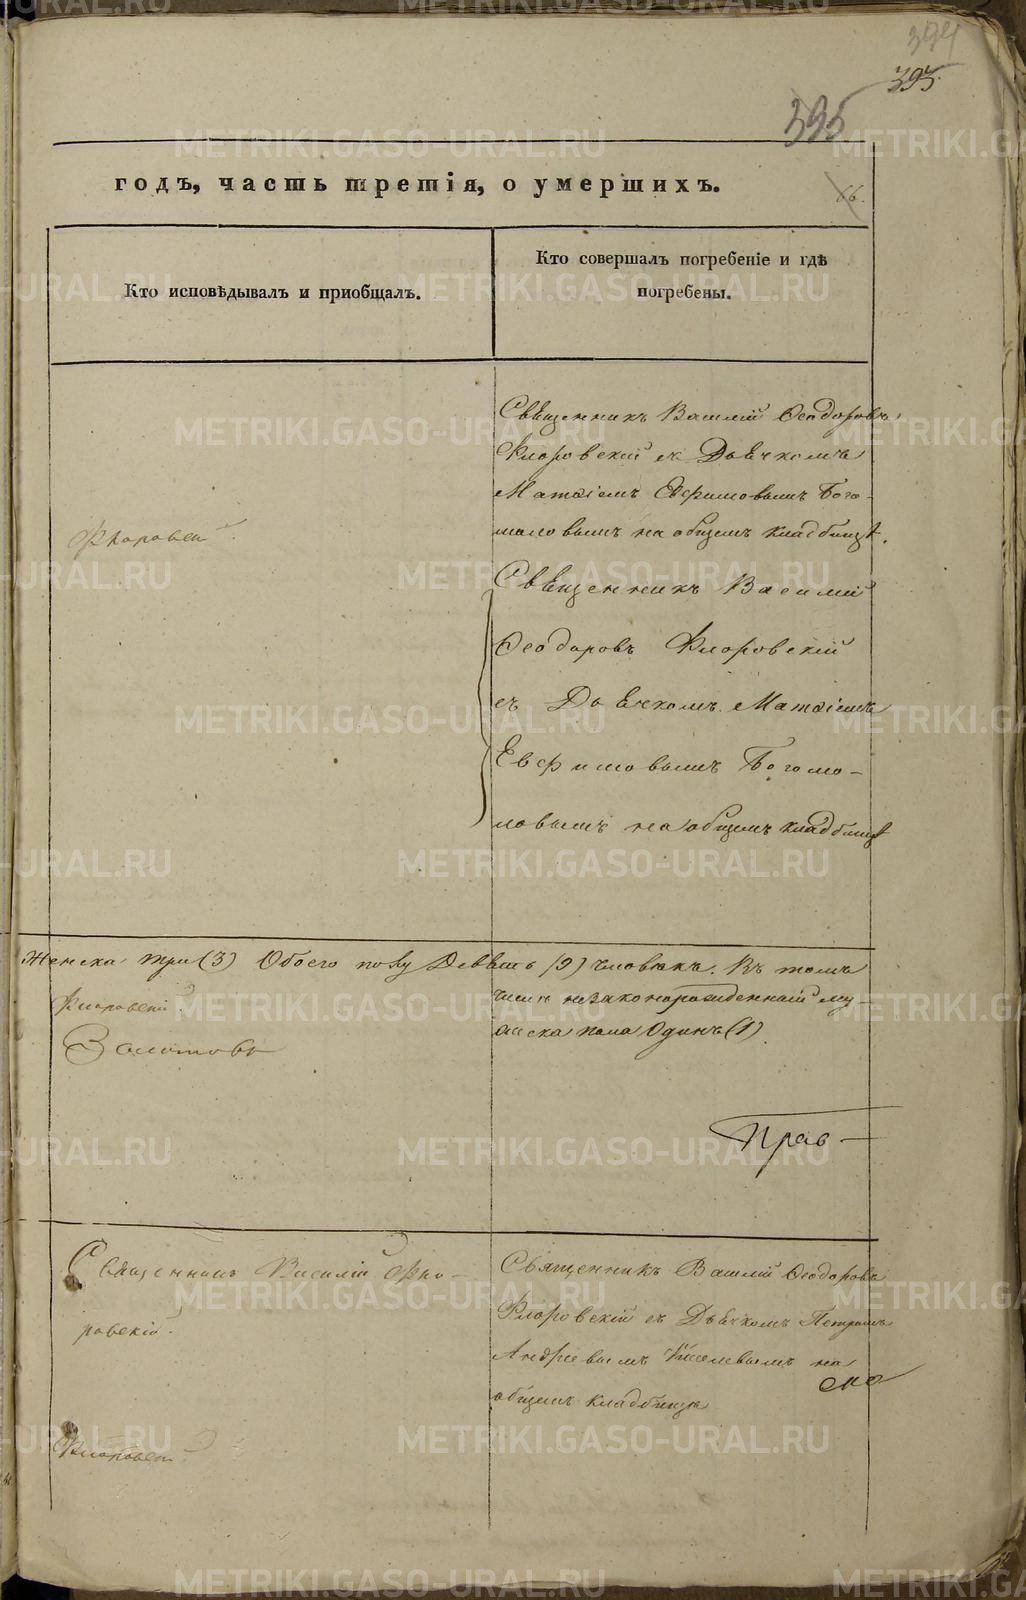 394
395
395
годъ, часть третія, о умершихъ.
66.
Кто исповѣдывалъ и приобщалъ.
Кто совершалъ погребеніе и гдѣ
погребены.
Священникъ Василій Ѳеодоровъ
Флоровскій съ Дьячкомъ
Матѳіемъ Евфимовымъ Бого-
моловымъ на общемъ кладбищѣ.
Флоровскій.
Священникъ Василій
Ѳеодоровъ Флоровскій
съ Дьячкомъ Матѳіемъ
Евфимовымъ Богомо-
ловымъ на общемъ кладбищѣ
Женска три (3) Обоего полу Девять (9) человѣкъ. Въ томъ
числѣ незаконорожденный му-
жеска пола Одинъ (1).
Флоровскій.
Золотовъ
Прав-
Священникъ Василій Фло-
ровскій.
Священникъ Василій Ѳеодоровъ
Флоровскій съ Дьячкомъ Петромъ
Андреевымъ Киселевымъ на
общемъ кладбищѣ
Флоровскій
METRIKI.GASO-URAL.RU